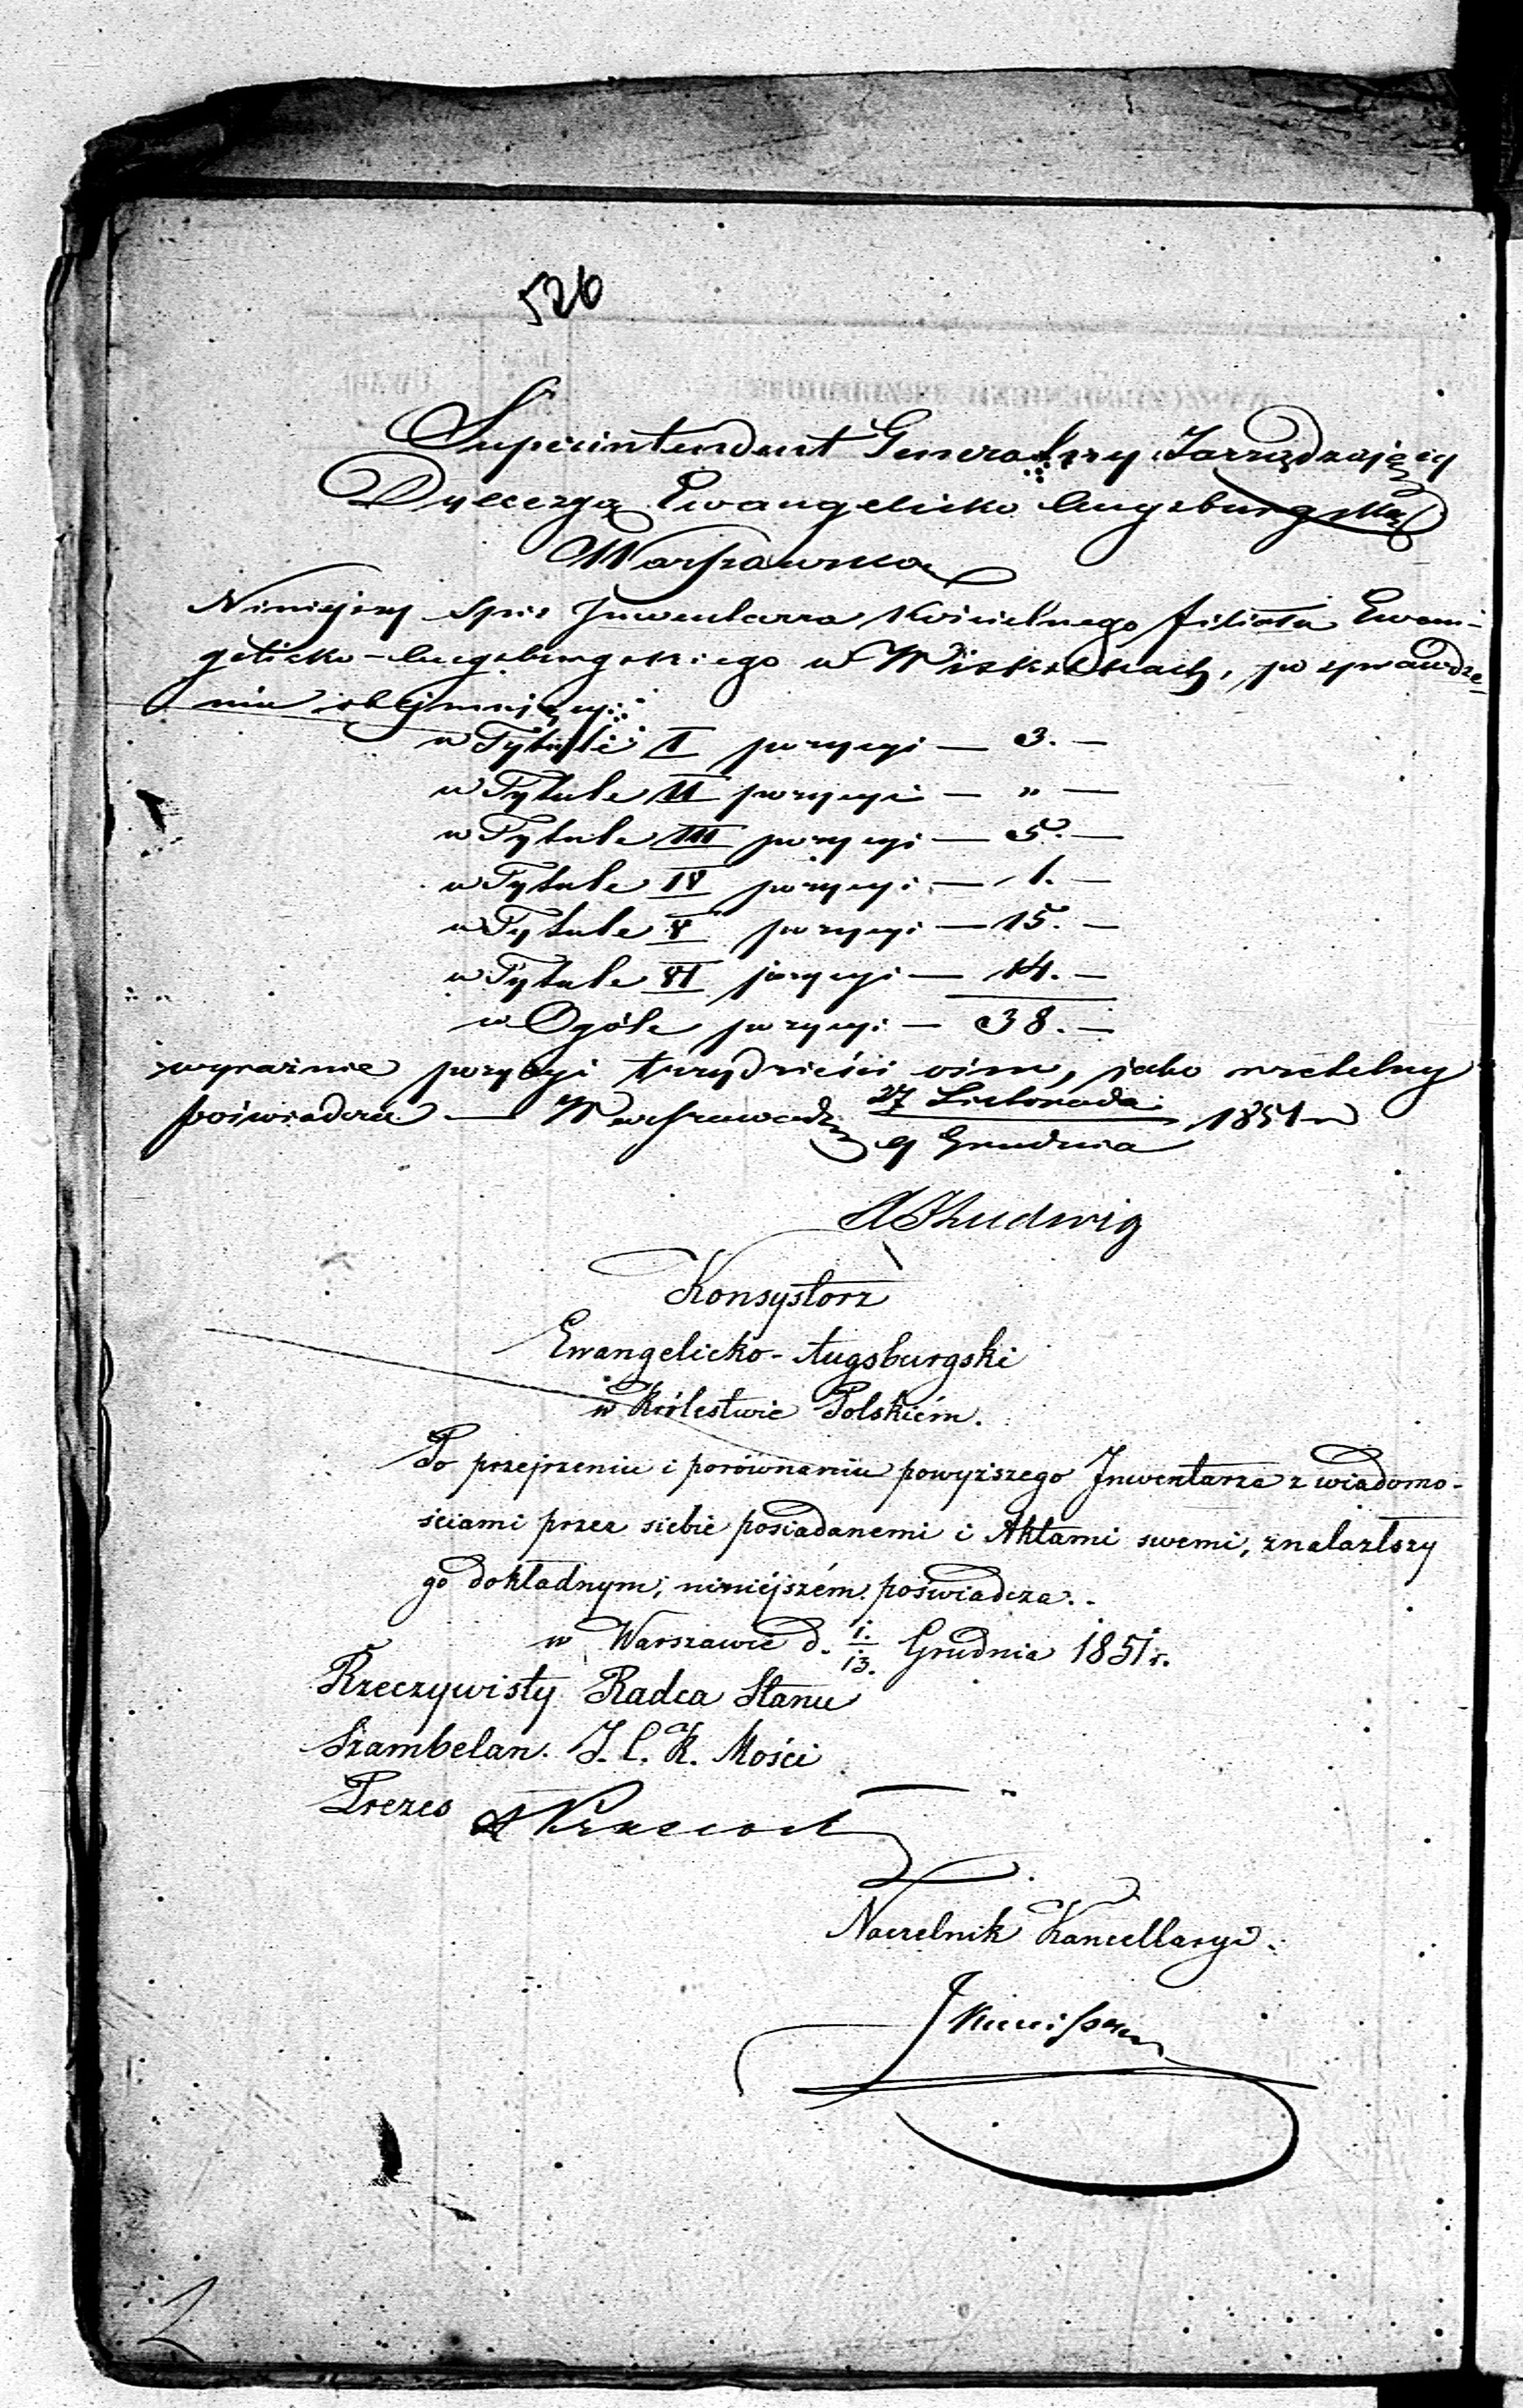 526
Superintendent Generalny Zarządzający
Dyecezyą Ewangelicko Augsburgską
Warszawska
Niniejszy Spis Inwentarza Kościelnego filiała Ewan-
gelicko-Augsburgskiego w Wiskitkach, po sprawdze-
niu obejmujący:
w Tytule I pozycyi — 3. —
w Tytule II pozycyi — „ —
w Tytule III pozycyi — 5. —
w Tytule IV pozycyi — 1. —
w Tytule V pozycyi — 15. —
w Tytule VI pozycyi — 14. —
w Ogóle pozycyi — 38. —
wyraźnie pozycyi trzydzieści ośm, jako rzetelny
poświadcza — Warszawa dn 27 Listopada / 9 Grudnia 1851 r
Ludwig
Konsystorz
Ewangelicko-Augsburgski
w Królestwie Polskiém.
Po przejrzeniu i porównaniu powyższego Inwentarza z wiadomo-
ściami przez siebie posiadanemi i Aktami swemi, znalazłszy
go dokładnym, niniejszém poświadcza.
w Warszawie d. 1./13. Grudnia 1851 r.
Rzeczywisty Radca Stanu
Szambelan J. C. K. Mości
Prezes
Naczelnik Kancellaryi.